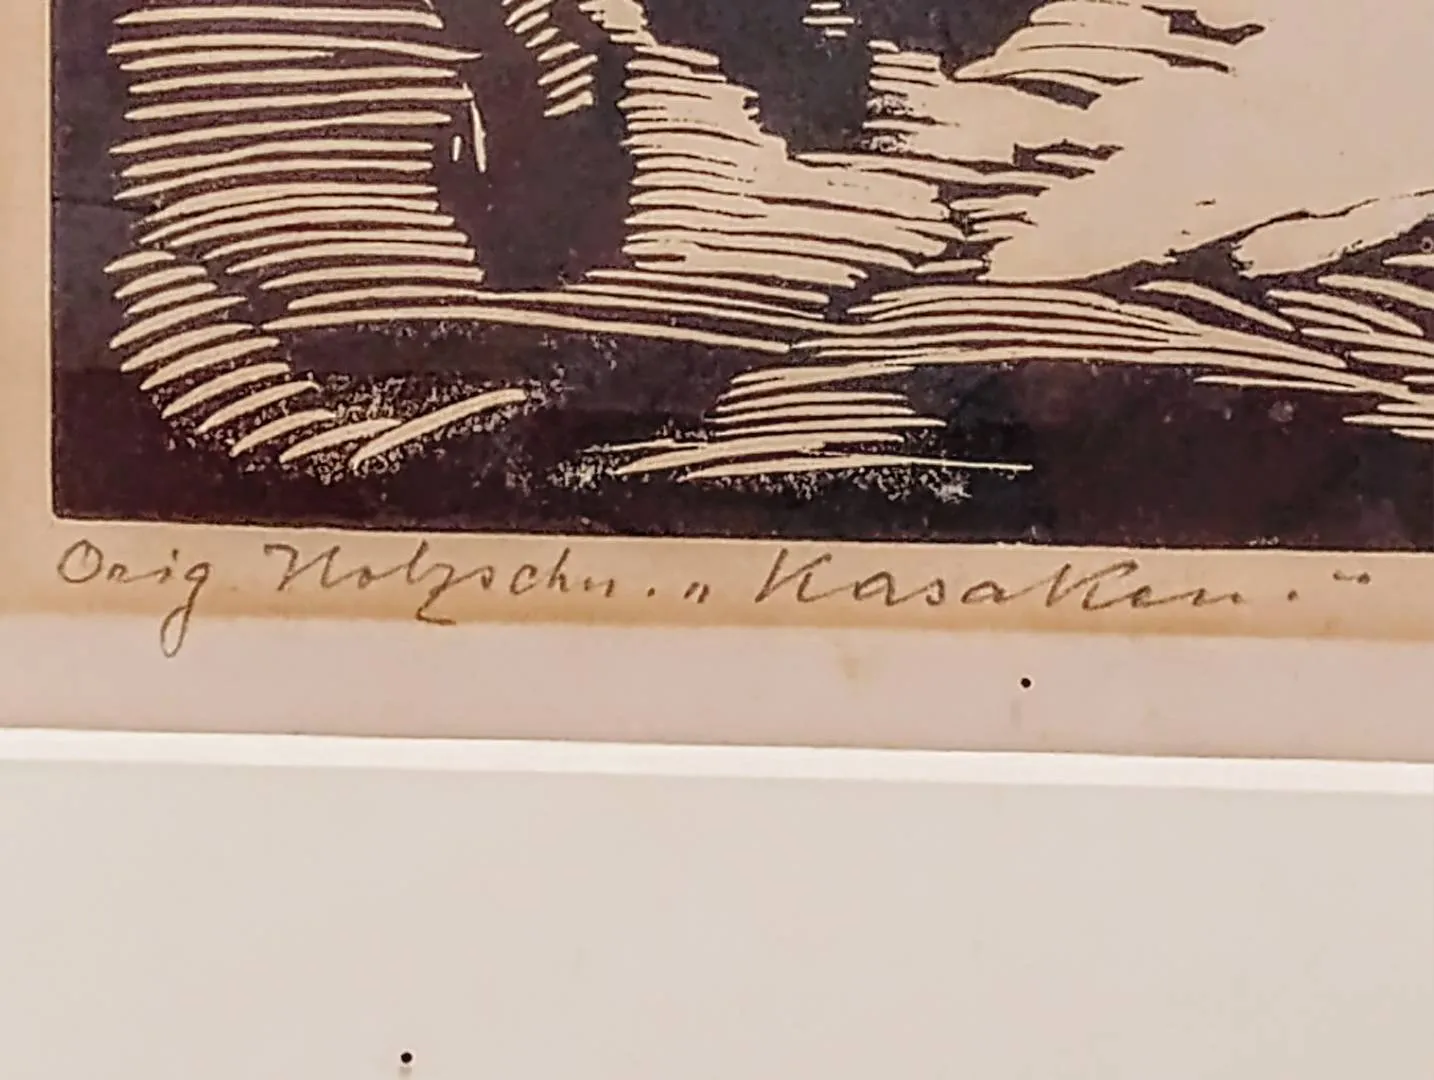 Orig Holzschn. „Kasaken.“